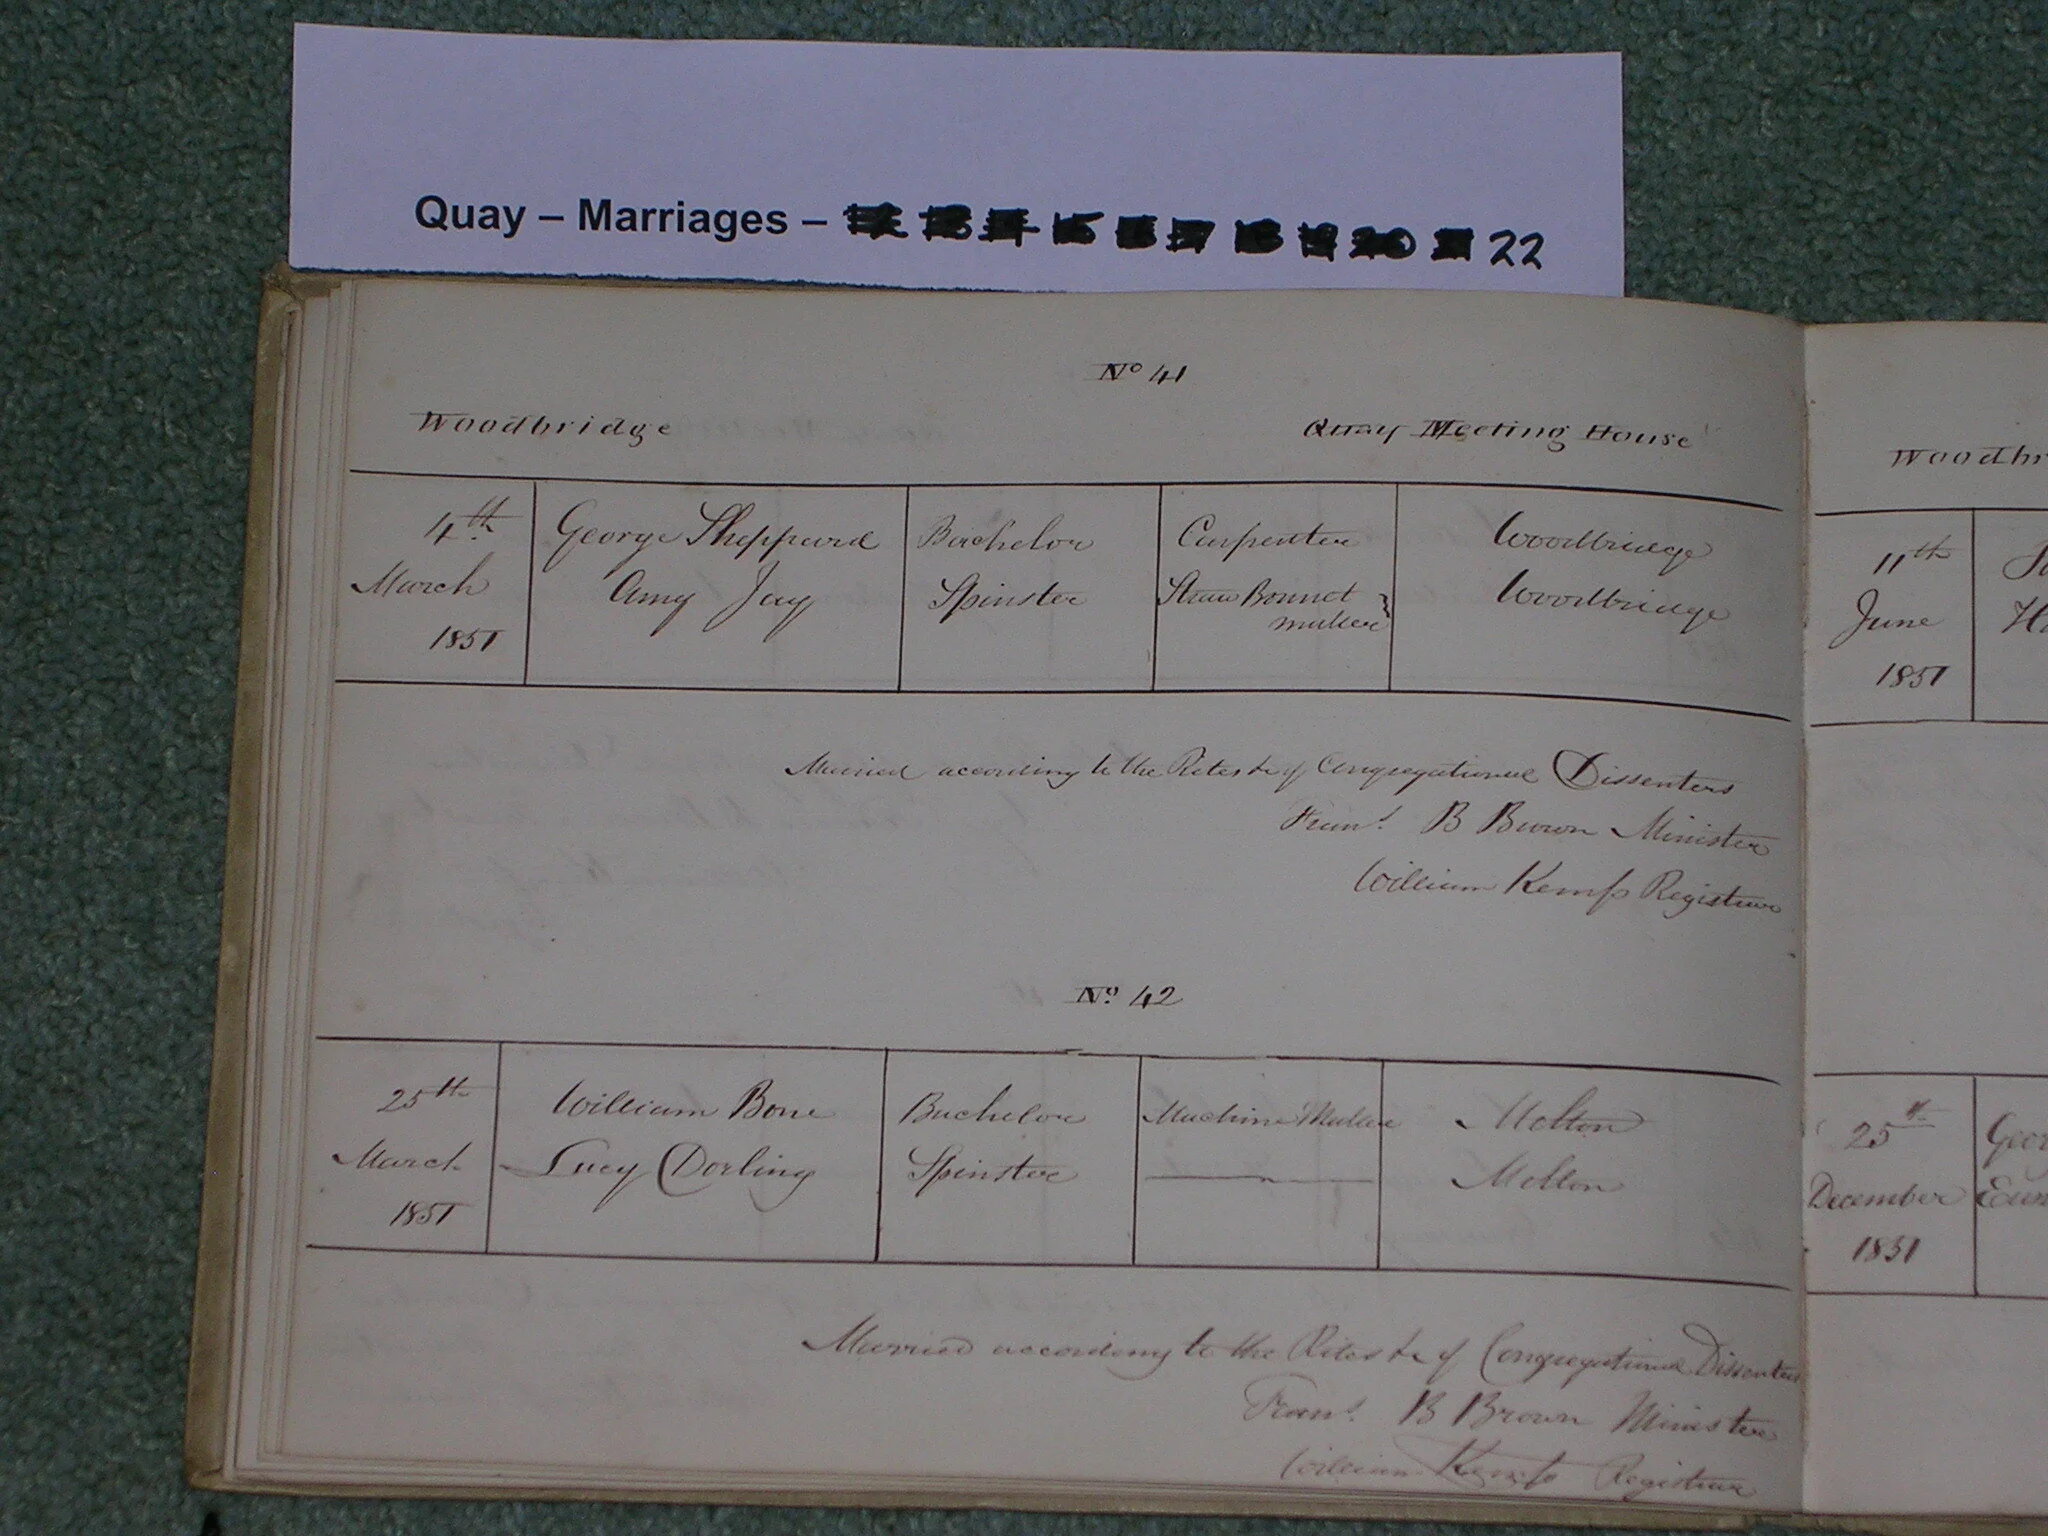 Quay – Marriages – 22
No 41
Woodbridge Quay Meeting House
4th George Sheppard Bachelor Carpenter Woodbridge
March Amy Jay Spinster Straw Bonnet Woodbridge
maker
1851
Married according to the Rites &c of Congregational Dissenters
Frans. B Brown Minister
William Kemp Registrar
No 42
25th William Bone Bachelor Machine Maker Melton
March Lucy Dorling Spinster Melton
1851
Married according to the Rites &c of Congregational Dissenters
Frans. B Brown Minister
William Kemp Registrar
Woodbr
11th
June
1851
25th Geor
December
1851